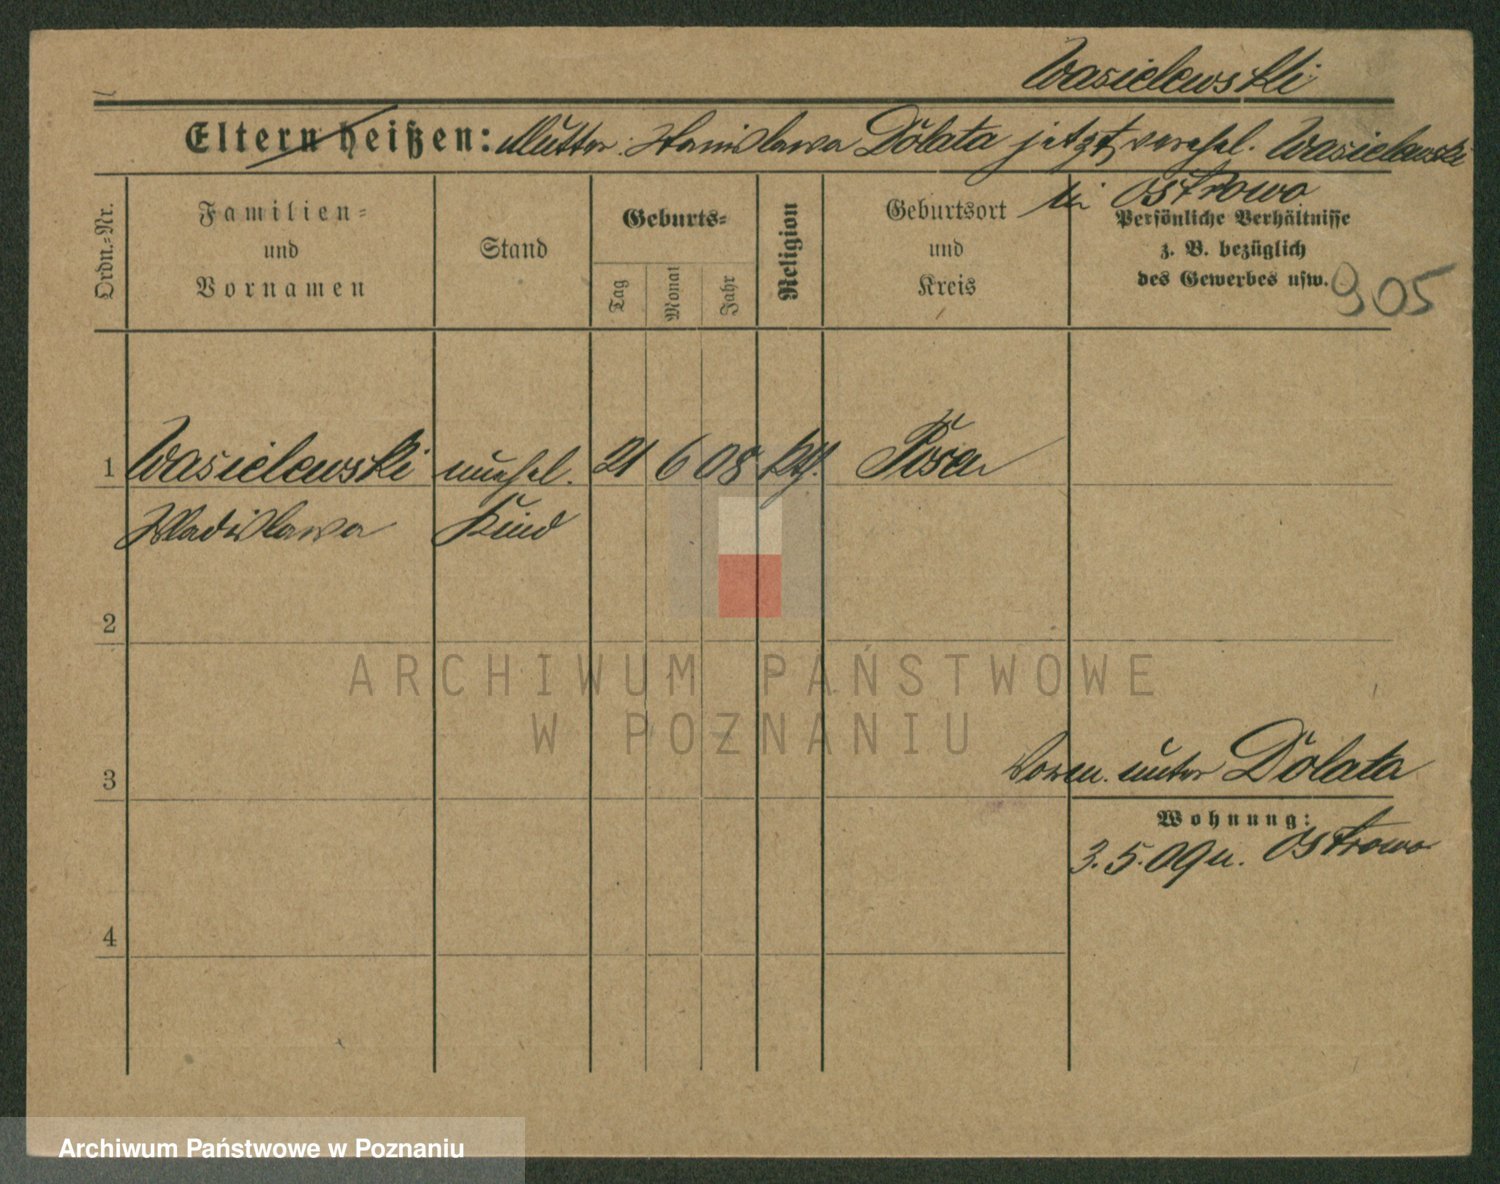 Wasielewski
Eltern heißen: Mutter: Stanislawa Dolata jetzt verehel. Wasielewski
in Ostrowo
Ordn.-Nr.
Familien-
und
Vornamen
Stand
Geburts-
Tag
Monat
Jahr
Religion
Geburtsort
und
Kreis
Persönliche Verhältnisse
z. B. bezüglich
des Gewerbes usw.
905
1 Wasielewski unehel. 21 6 08 kth. Posen
Wladislawa Kind
2
ARCHIWUM PAŃSTWOWE
W POZNANIU
3
unter Dolata
Wohnung:
3.5.09 n. Ostrowo
4
Archiwum Państwowe w Poznaniu